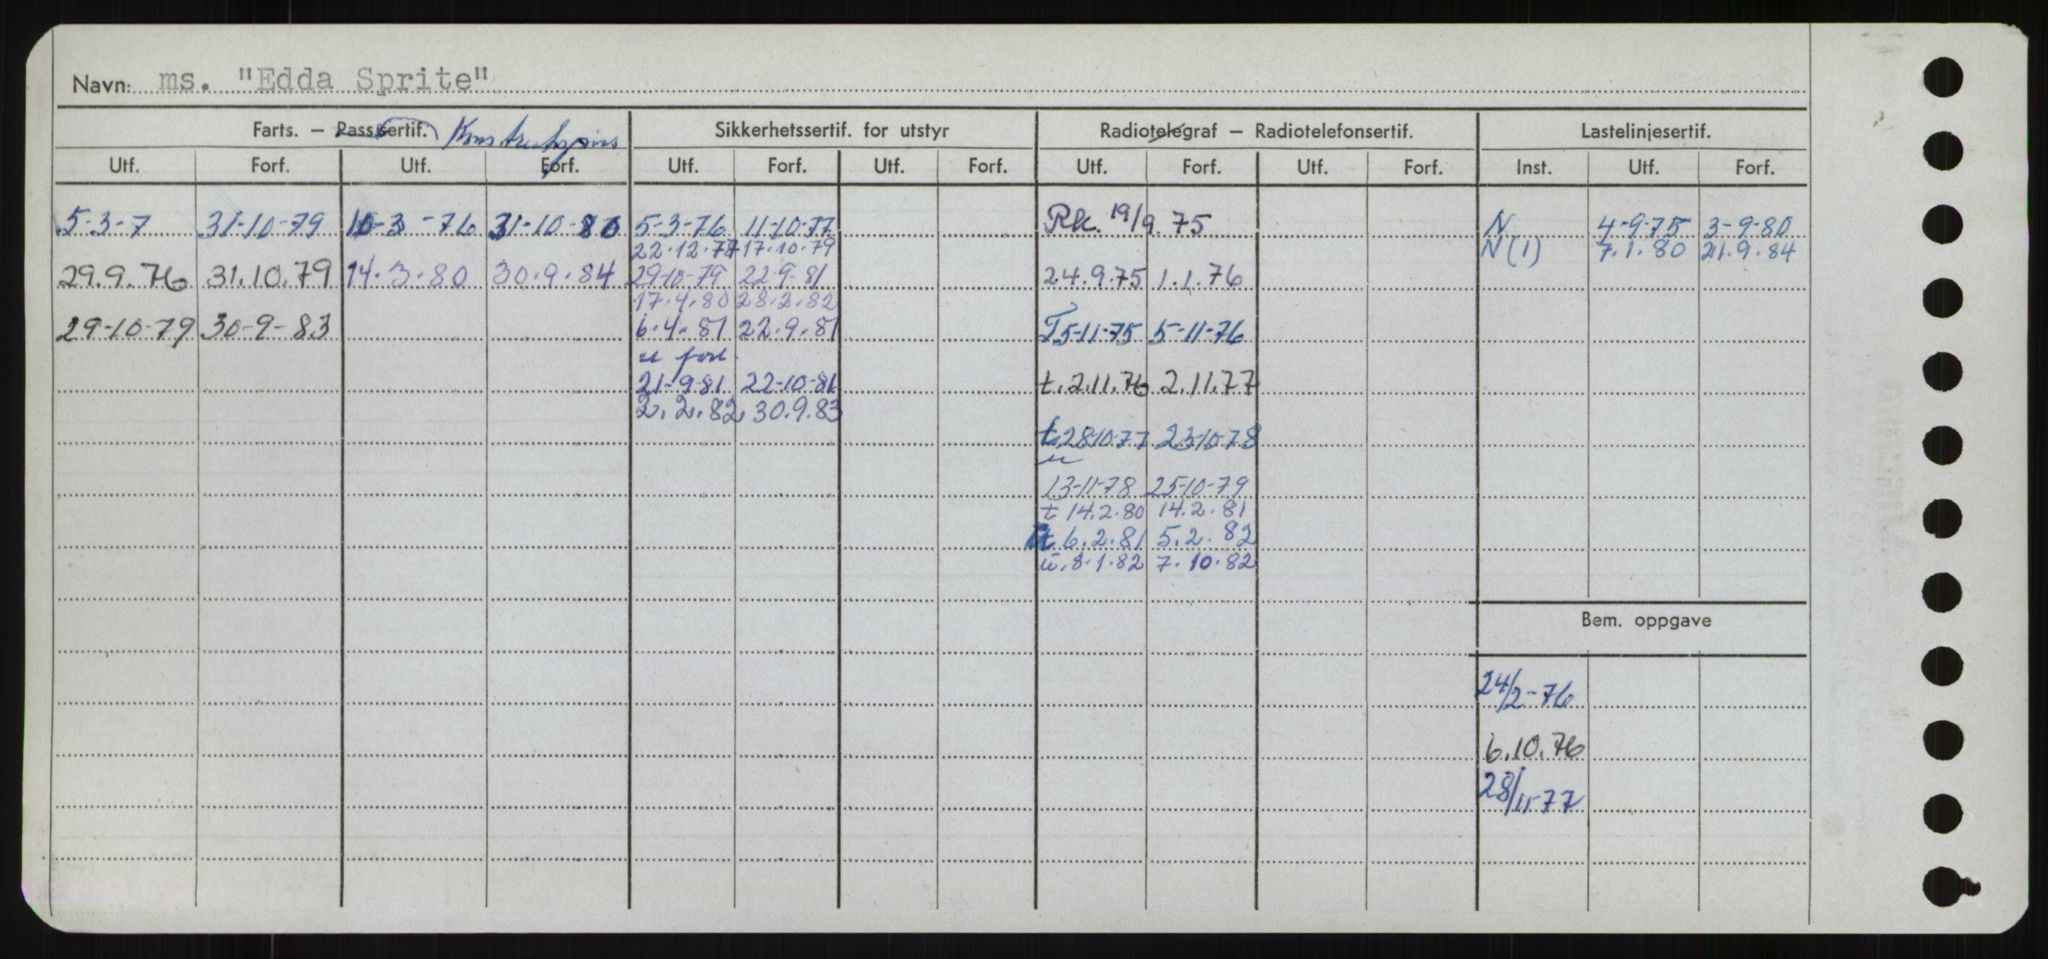 Navn: ms. "Edda Sprite"
Farts. – Passsertif. Sikkerhetssertif. for utstyr Radiotelegraf – Radiotelefonsertif. Lastelinjesertif.
Utf. Forf. Utf. Forf. Utf. Forf. Utf. Forf. Utf. Forf. Utf. Forf. Inst. Utf. Forf.
5-3-7 31-10-79 10-3-76 31-10-80 5-3-76 11-10-77 Rk. 19/9 75 N 4-9-75 3-9-80
22.12.78 17.10.79 N(1) 7.1.80 21.9.84
29.9.76 31.10.79 14.3.80 30.9.84 29-10-79 22-9-81 24.9.75 1.1.76
17.4.80 28.2.82
29-10-79 30-9-83 6.4.81 22.9.81 T 5-11-75 5-11-76
u forl.
21-9-81 22-10-81 t. 2.11.76 2.11.77
2.2.82 30.9.83
t 28-10-77 23-10-78
u
13-11-78 25-10-79
t 14.2.80 14.2.81
t 6.2.81 5.2.82
u. 8.1.82 7.10.82
Bem. oppgave
24/2-76
6.10.76
28/11-77